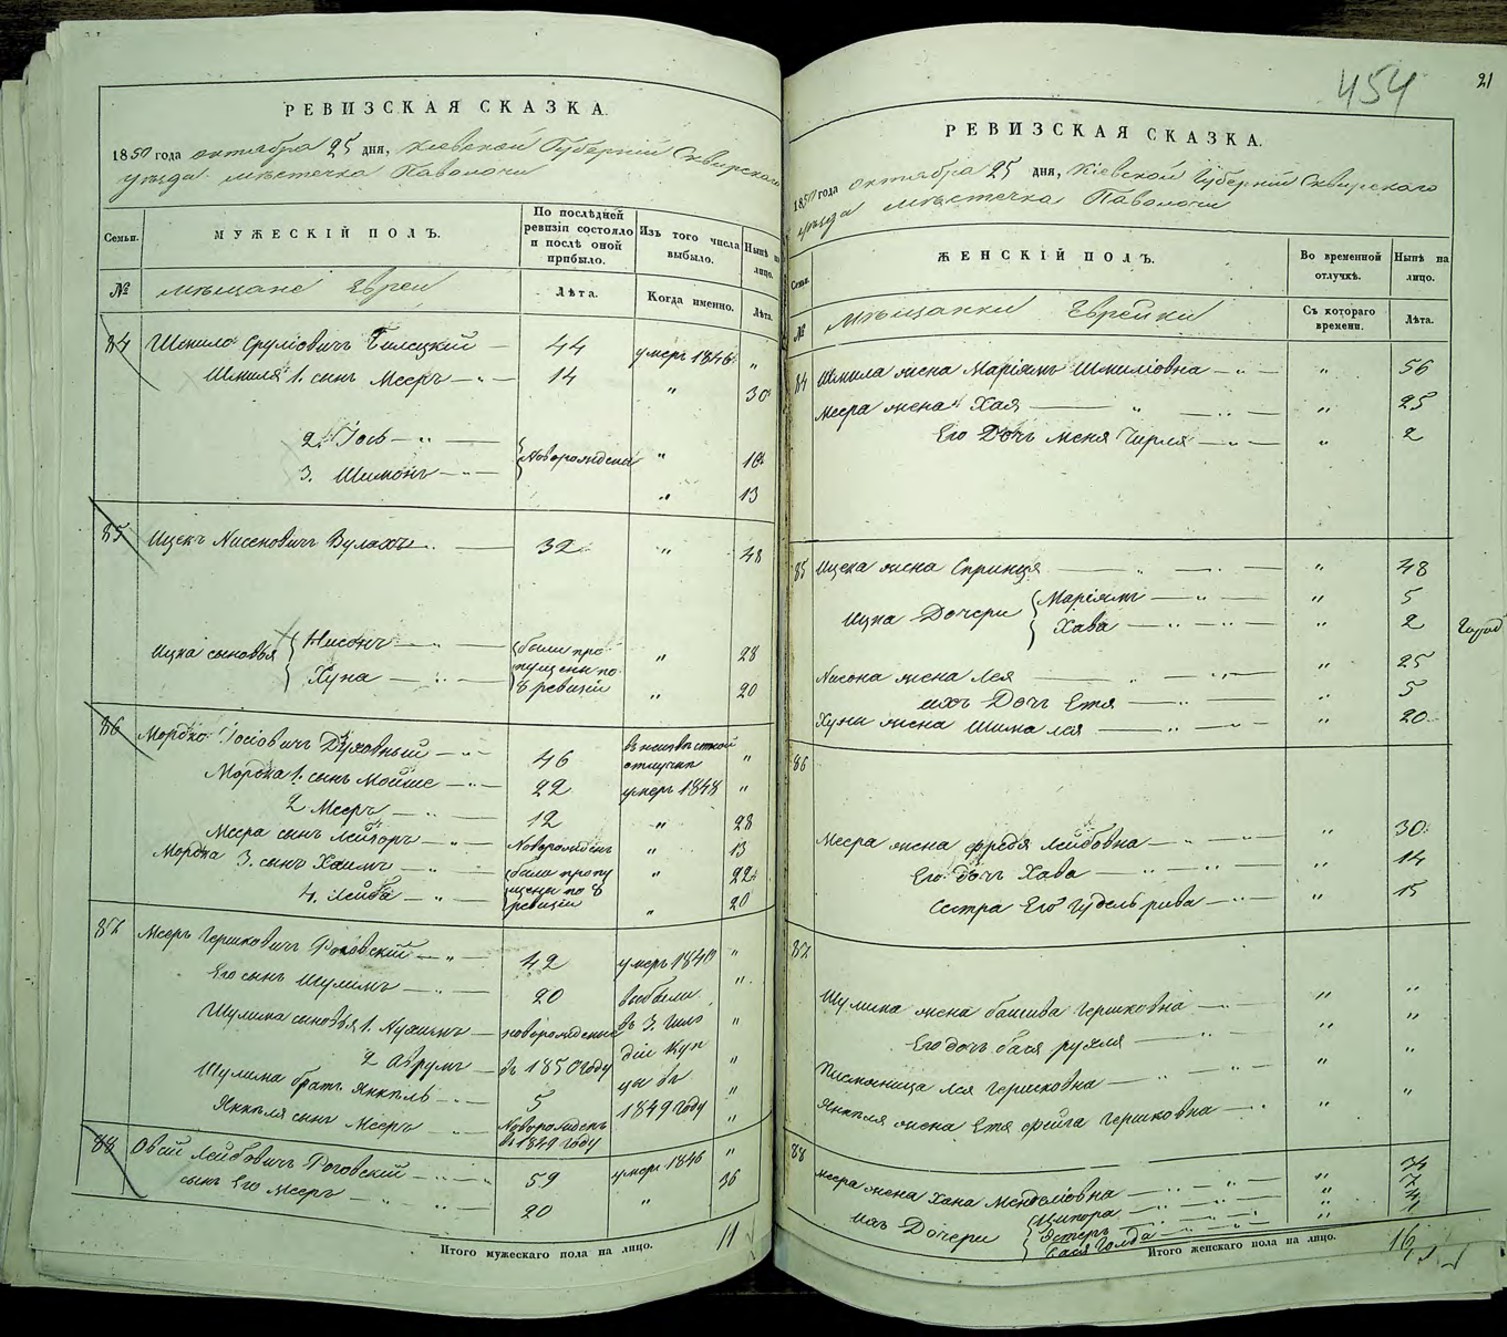 РЕВИЗСКАЯ СКАЗКА.
1850 года октября 25 дня, Кіевской Губерніи Сквирскаго
уѣзда мѣстечка Паволочи
Семьи.
МУЖЕСКІЙ ПОЛЪ.
По послѣдней ревизіи состояло и послѣ оной прибыло.
Изъ того числа выбыло.
Нынѣ на лицо.
№
мѣщане Евреи
Лѣта.
Когда именно.
Лѣта.
84 Шмило Сруліовичъ Билецкій — 44 умеръ 1846 "
Шмиля 1. сынъ Мееръ — " — 14 " 30
2. Іось — " — Новорожденны " 16
3. Шимонъ — " — " 13
85 Ицекъ Нисеновичъ Вулахъ — 32 " 48
Ицка сыновья Нисонъ — были про- " 28
Хуна — " — пущены по 8 ревизіи " 20
86 Мордко Іосіовичъ Духовный — " — 46 в неизвѣстной отлучкѣ "
Мордка 1. сынъ Мойше — " — 22 умеръ 1848 "
2 Мееръ — " — 12 " 28
Меера сынъ Лейзоръ — " — Новорожденъ " 13
Мордка 3. сынъ Хаимъ — " — были пропу " 22
4. Лейба — " — щены по 8 ревизіи " 20
87 Мееръ Гершковичъ Роговскій — " — 42 умеръ 1840 "
Его сынъ Шулимъ — " — 20 выбыли "
Шулима сыновья 1. Нухимъ — новорожденные въ 3. гиль "
2 Аврумъ — въ 1850 году діи Куп "
Шулима братъ Янкель — " — 5 цы въ "
Янкеля сынъ Мееръ — Новорожденъ въ 1849 году 1849 году "
88 Овсій Лейбовичъ Роговскій — " — 59 умеръ 1846 "
сынъ Его Мееръ — " — 20 " 36
Итого мужескаго пола на лицо. 11
454
21
РЕВИЗСКАЯ СКАЗКА.
1850 года октября 25 дня, Кіевской Губерніи Сквирскаго
уѣзда мѣстечка Паволочи
Семьи.
ЖЕНСКІЙ ПОЛЪ.
Во временной отлучкѣ.
Нынѣ на лицо.
№
Мѣщанки Еврейки
Съ котораго времени.
Лѣта.
84 Шмила жена Маріямъ Шмиліовна — " — " 56
Меера жена Хая — " — " 25
Его Дочь Меня Чирля — " — " 2
85 Ицека жена Спринця — " — " 48
Ицка Дочери Маріямъ — " — " 5
Хава — " — " 2
Нисона жена Лея — " — " 25
ихъ Дочь Етя — " — " 5
Хуны жена Шима Лея — " — " 20
86
Меера жена Фрейда Лейбовна — " — " 30
Его дочь Хава — " — " 14
Сестра Его Гудель рива — " — " 15
87
Шулима жена башива Гершковна — " — " "
Его дочь бася рухля — " — " "
Лея Гершковна — " — " "
Янкеля жена Етя фейга Гершковна — " "
88 Меера жена Хана Менделіовна — " — " 34
ихъ Дочери Ципора — " — " 7
Эстеръ — " — " 4
бася Голда — " — "
Итого женскаго пола на лицо. 16